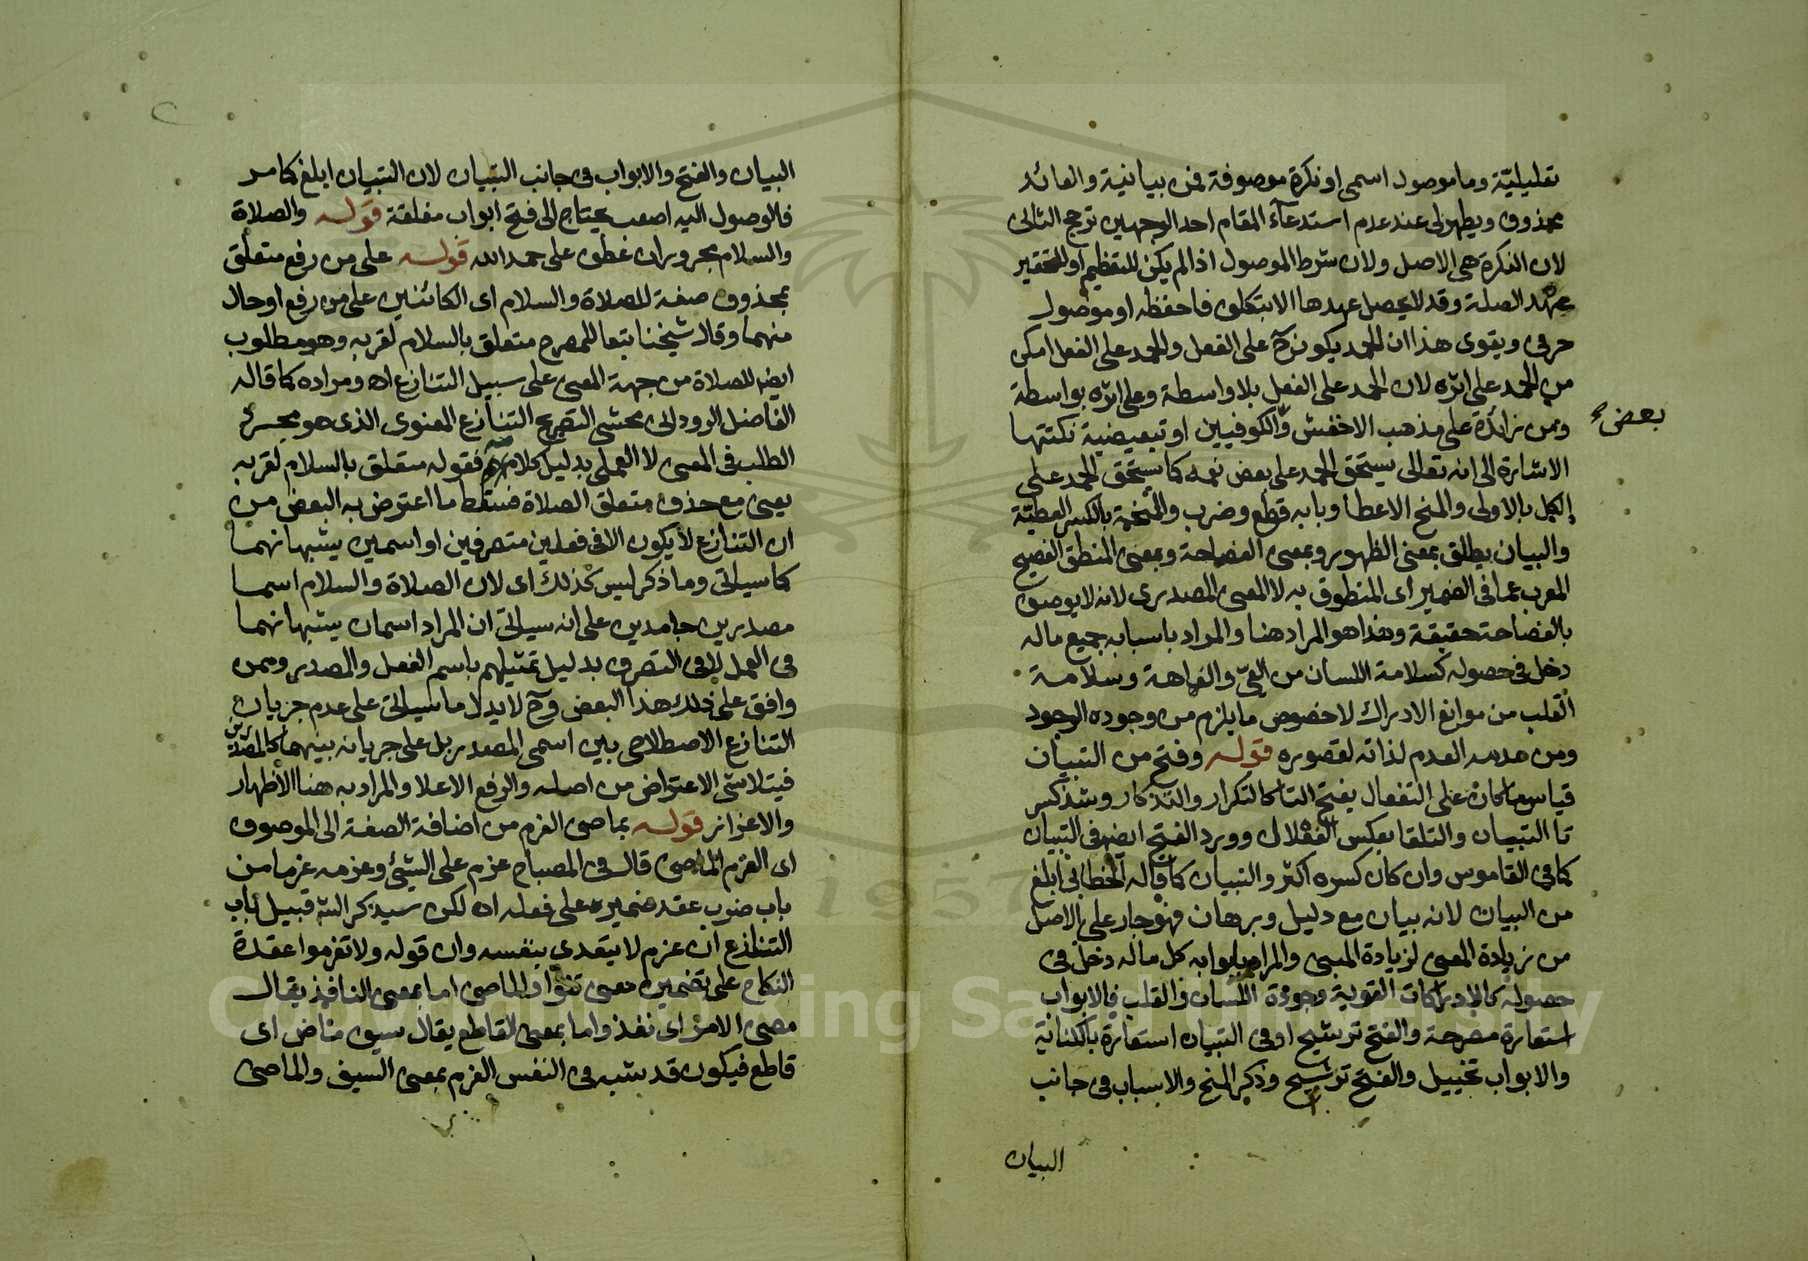 تعليليّة وما موصول اسمى او نكرة موصوفة فمن بيانية والعائد
محذوف ويظهر لى عند عدم استدعآء المقام احد الوجهين ترجح الثانى
لان النكرة هى الاصل ولان شرط الموصول اذا لم يكن للتعظيم او للتحقير
عهد الصلة وقد لا يحصل عهدها الا بتكلف فاحفظه او موصول
حرفى ويقوى هذا ان الحمد يكون ح على الفعل والحمد على الفعل امكن
من الحمد على اثره لان الحمد على الفعل بلا واسطة وعلى اثره بواسطة
ومن زائدة على مذهب الاخفش والكوفيين او تبعيضية نكتتها
بعض
الاشارة الى انه تعالى يستحق الحمد على بعض نعمه كما يستحق الحمد على
الكل بالاولى والمنح الاعطا وبابه قطع وضرب والمنحة بالكسر العطيّة
والبيان يطلق بمعنى الظهور وبمعنى الفصاحة وبمعنى المنطق الفصيح
المعرب عما فى الضمير اى المنطوق به لا المعنى المصدرى لانه لا يوصف
بالفصاحة حقيقة وهذا هو المراد هنا والمراد باسبابه جميع ماله
دخل فى حصوله كسلامة اللسان من العىّ والفهاهة وسلامة
القلب من موانع الادراك لا خصوص ما يلزم من وجوده الوجود
ومن عدمه العدم لذاته لقصوره قوله وفتح من التبيان
قياس ما كان على التفعال بفتح التا كالتكرار والتذكار وشذ كسر
تا التبيان والتلقا بعكس الفعلال وورد الفتح ايضا فى التبيان
كما فى القاموس وان كان كسره اكثر والتبيان كما قاله الخطابى ابلغ
من البيان لانه بيان مع دليل وبرهان فهو جار على الاصل
من زيادة المعنى لزيادة المبنى والمراد بابوابه كل ماله دخل فى
حصوله كالادراكات القوية وجودة اللسان والقلب فالابواب
استعارة مصرحة والفتح ترشيح او فى التبيان استعارة بالكناية
والابواب تخييل والفتح ترشيح وذكر المنح والاسباب فى جانب
البيان
البيان والفتح والابواب فى جانب التبيان لان التبيان ابلغ كما مر
فالوصول اليه اصعب يحتاج الى فتح ابواب مغلقة قوله والصلاة
والسلام مجروران عطف على حمد الله قوله على من رفع متعلق
بمحذوف صفة للصلاة والسلام اى الكائنين على من رفع او حال
منهما وقال شيخنا تبعا للمصرح متعلق بالسلام لقربه وهو مطلوب
ايضا للصلاة من جهة المعنى على سبيل التنازع اه ومراده كما قاله
الفاضل الرودانى محشى التصريح التنازع المعنوى الذى هو مجرد
الطلب فى المعنى لا العملى بدليل كلام فقوله متعلق بالسلام لقربه
يعنى مع حذف متعلق الصلاة فسقط ما اعترض به البعض من
ان التنازع لا يكون الا فى فعلين متصرفين او اسمين يشبهانهما
كما سياتى وما ذكر ليس كذلك اى لان الصلاة والسلام اسما
مصدرين جامدين على انه سياتى ان المراد اسمان يشبهانهما
فى العمل لا فى التصرف بدليل تمثيلهم باسم الفعل والمصدر وممن
وافق على ذلك هذا البعض وح لا يدل ما سياتى على عدم جريان
التنازع الاصطلاحى بين اسمى المصدر بل على جريانه بينهما كالمصدرين
فيتلاشى الاعتراض من اصله والرفع الاعلا والمراد به هنا الاظهار
والاعزاز قوله بماضى العزم من اضافة الصفة الى الموصوف
اى العزم الماضى قال فى المصباح عزم على الشئ وعزمه عزما من
باب ضرب عقد ضميره على فعله اه لكن سيذكر الش قبيل باب
التنازع ان عزم لا يتعدى بنفسه وان قوله ولا تعزموا عقدة
النكاح على تضمين معنى تنووا والماضى اما بمعنى النافذ يقال
مضى الامر اى نفذ واما بمعنى القاطع يقال سيف ماض اى
قاطع فيكون قد شبه فى النفس العزم بمعنى السيف والماضى